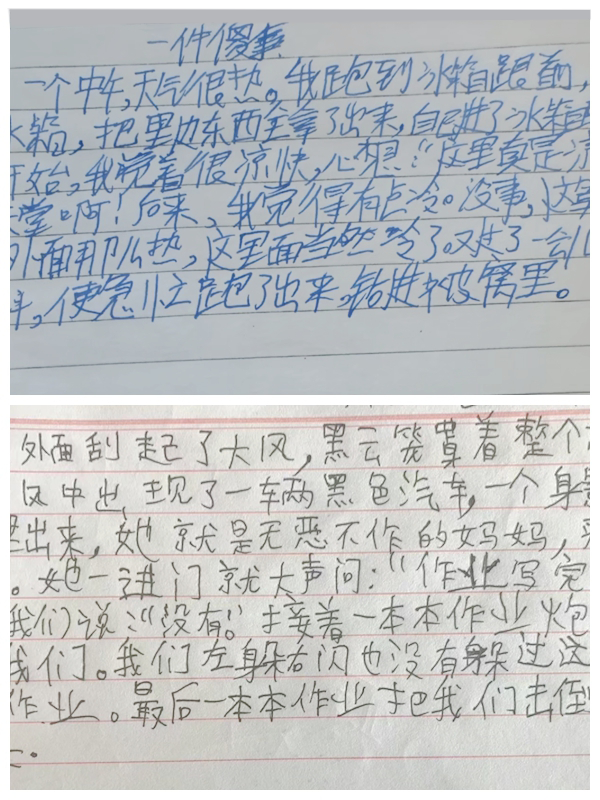 一件傻事
一个中午,天气很热。我跑到冰箱跟前,
冰箱,把里边东西全拿了出来,自己进了冰箱
开始,我觉着很凉快,心想:“这里真是
堂啊!后来,我觉得有点冷。没事,这
外面那么热,这里面当然冷了。又过了一会儿
使急忙跑了出来,钻进被窝里。
外面刮起了大风,黑云笼罩着整个
风中出现了一车两黑色汽车,一个身
出来,她就是无恶不作的妈妈,
。她一进门就大声问:“作业写完
我们说:“没有。”接着一本本作业炮
我们。我们左躲右闪也没有躲过这
作业。最后一本本作业把我们击倒